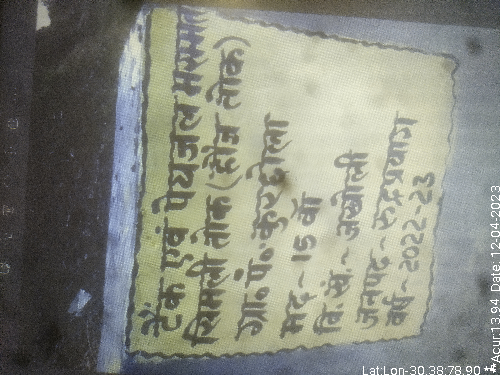 टैंक एवं पेयजल मरम्मत
सिमली तोक (हीज तोक)
ग्रा० पं०- कुरछोला
मद ~ 15 वाँ
वि० खं० ~ जखोली
जनपद ~ रुद्रप्रयाग
वर्ष ~ 2022-23
Lat:Lon-30.38:78.90 **Acur:13.94, Date: 12-04-2023